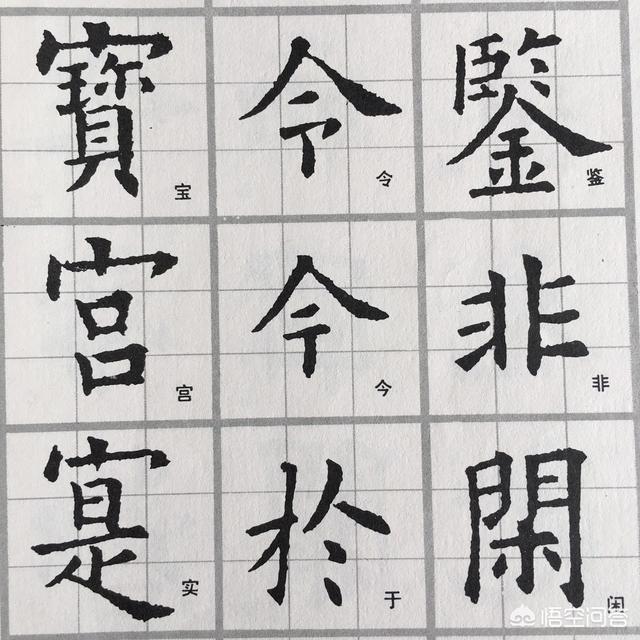 寶 令 鍳
宝 令 鉴
宮 今 非
宫 今 非
寔 於 閑
实 于 闲
悟空问答